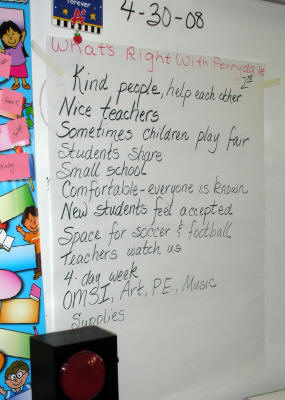 4-30-08
What's Right With Perrydale
2nd
Kind people, help each other
Nice teachers
Sometimes children play fair
Students share
Small school
Comfortable-everyone is known
New students feel accepted
Space for soccer & football
Teachers watch us
4-day week
OMSI, Art, P.E., Music
Supplies